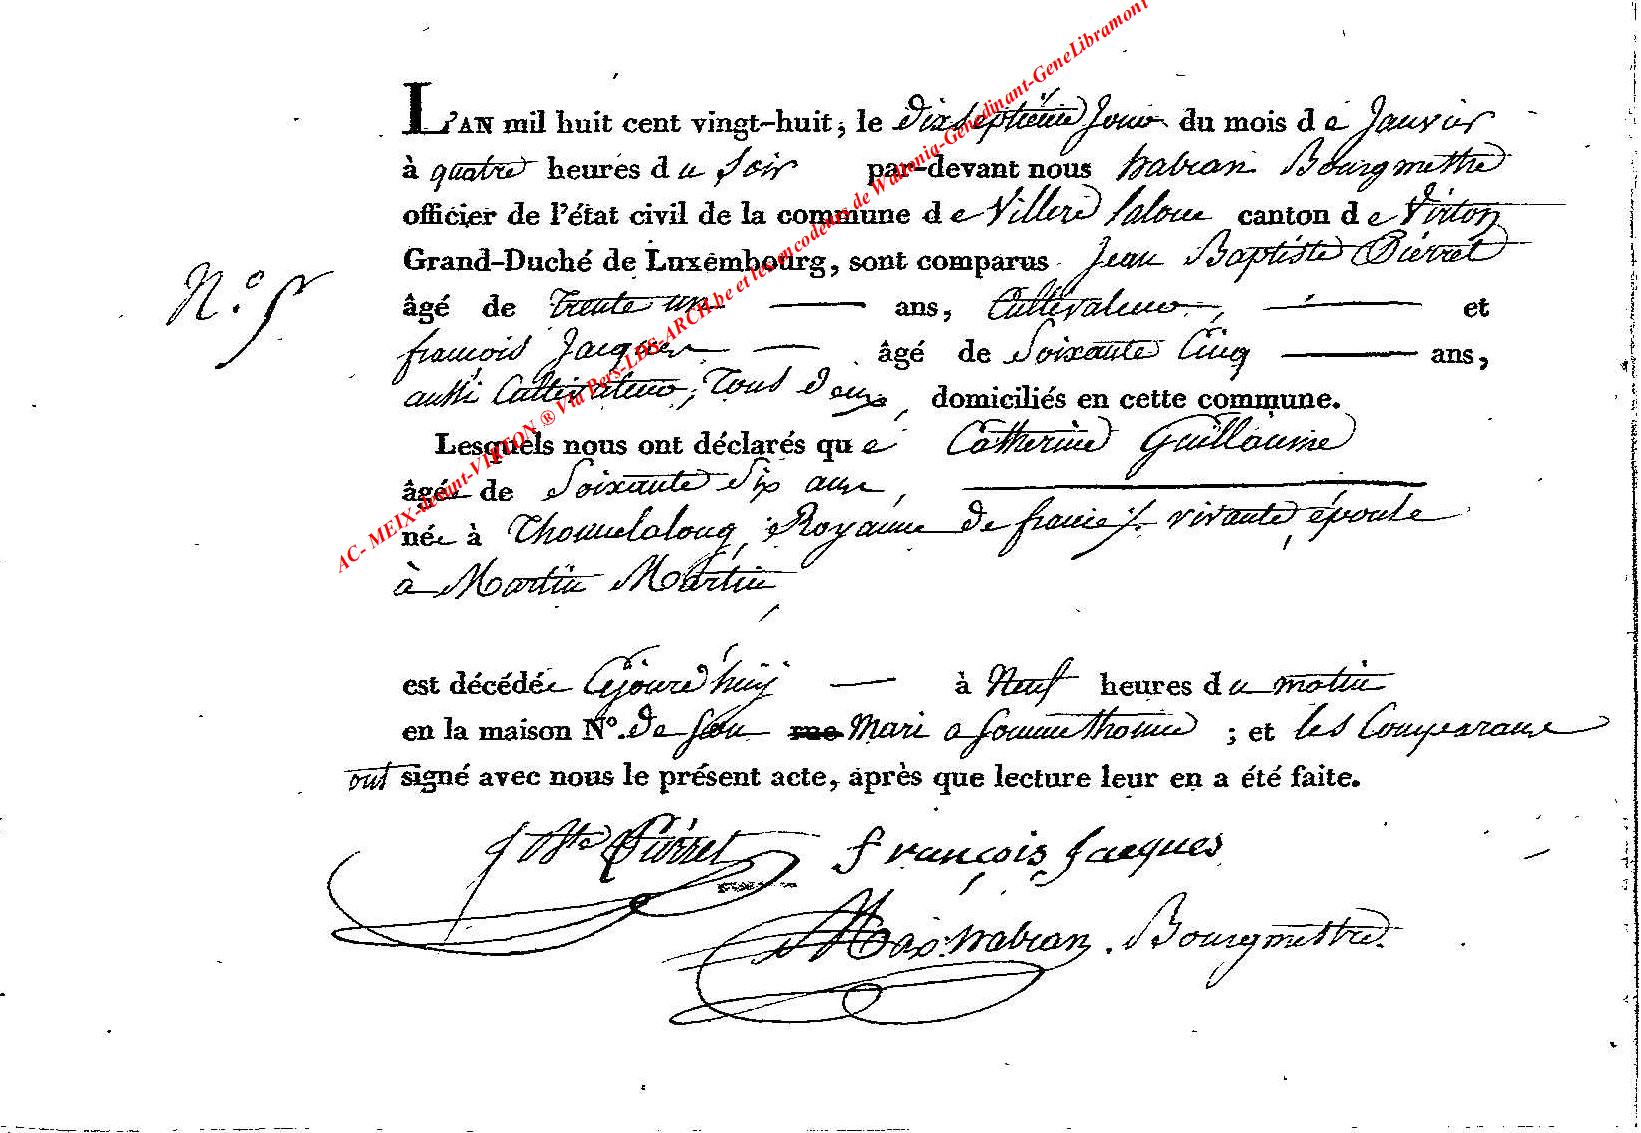 L'AN mil huit cent vingt-huit, le dix septième Jour du mois de Janvier
à quatre heures du Soir par-devant nous habran Bourgmettre
officier de l'état civil de la commune de Villers laloue canton de Virton
Grand-Duché de Luxembourg, sont comparus Jean Baptiste Pierret
N.° 5
âgé de Trente un ans, Cultivateur, et
françois Jacques âgé de Soixante Cinq ans,
aussi Cultivateur, Tous deux, domiciliés en cette commune.
Lesquels nous ont déclarés que Catherine Guillaume
âgée de Soixante Six ans,
née à Thonnelalong, Royaume de france, vivante épouse
à Martin Martin
est décédée Cejourd'huy à Neuf heures du matin
en la maison N°. de son rue Mari a Sommethonne ; et les Comparans
ont signé avec nous le présent acte, après que lecture leur en a été faite.
J Bte Pierret françois Jacques
habran. Bourgmettre.
AC- MEIX-devant-VIRTON ® Via Pers-LDS-ARCH.be et les encodeurs de Wallonia-Genedinant-GeneLibramont